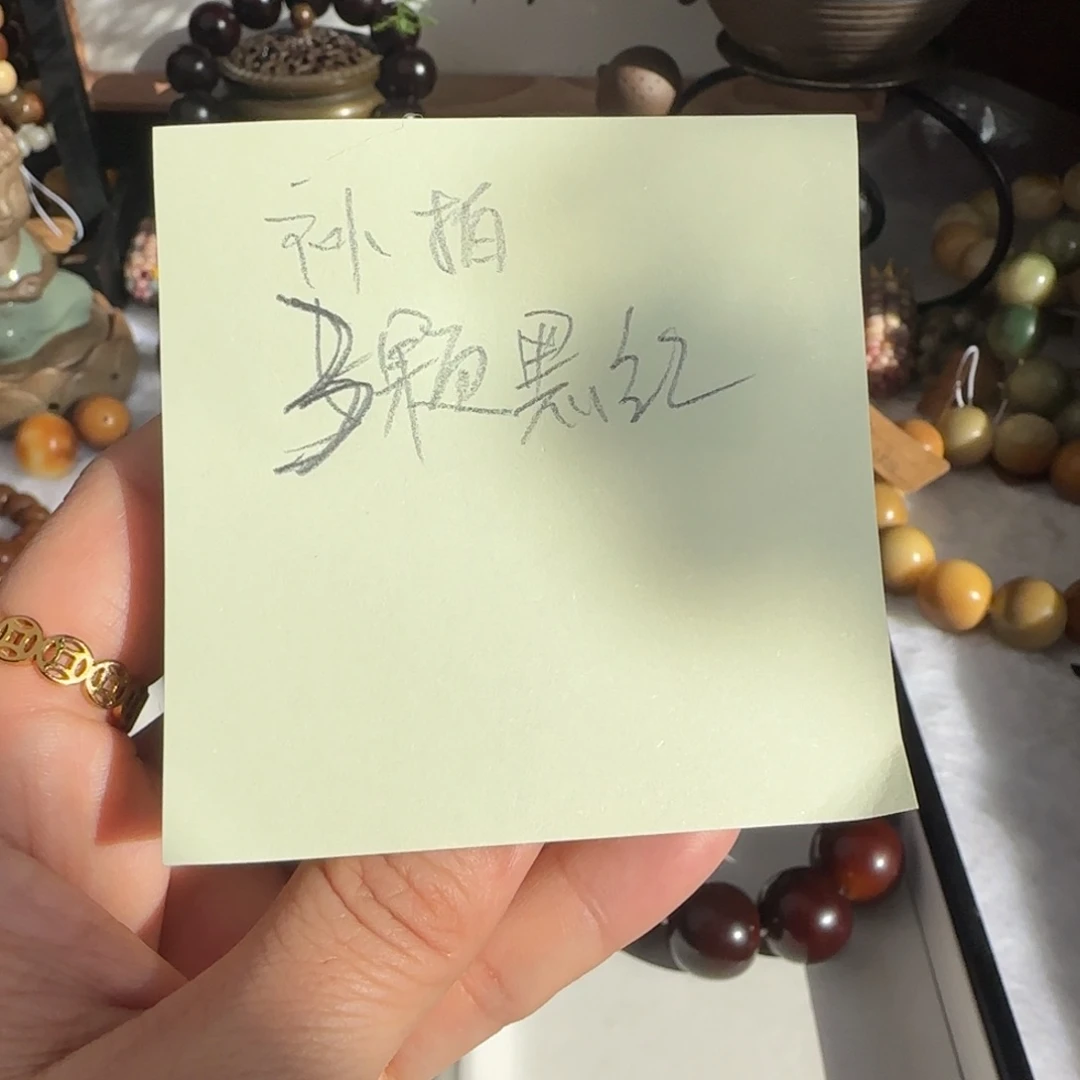 补拍
3颗黑红